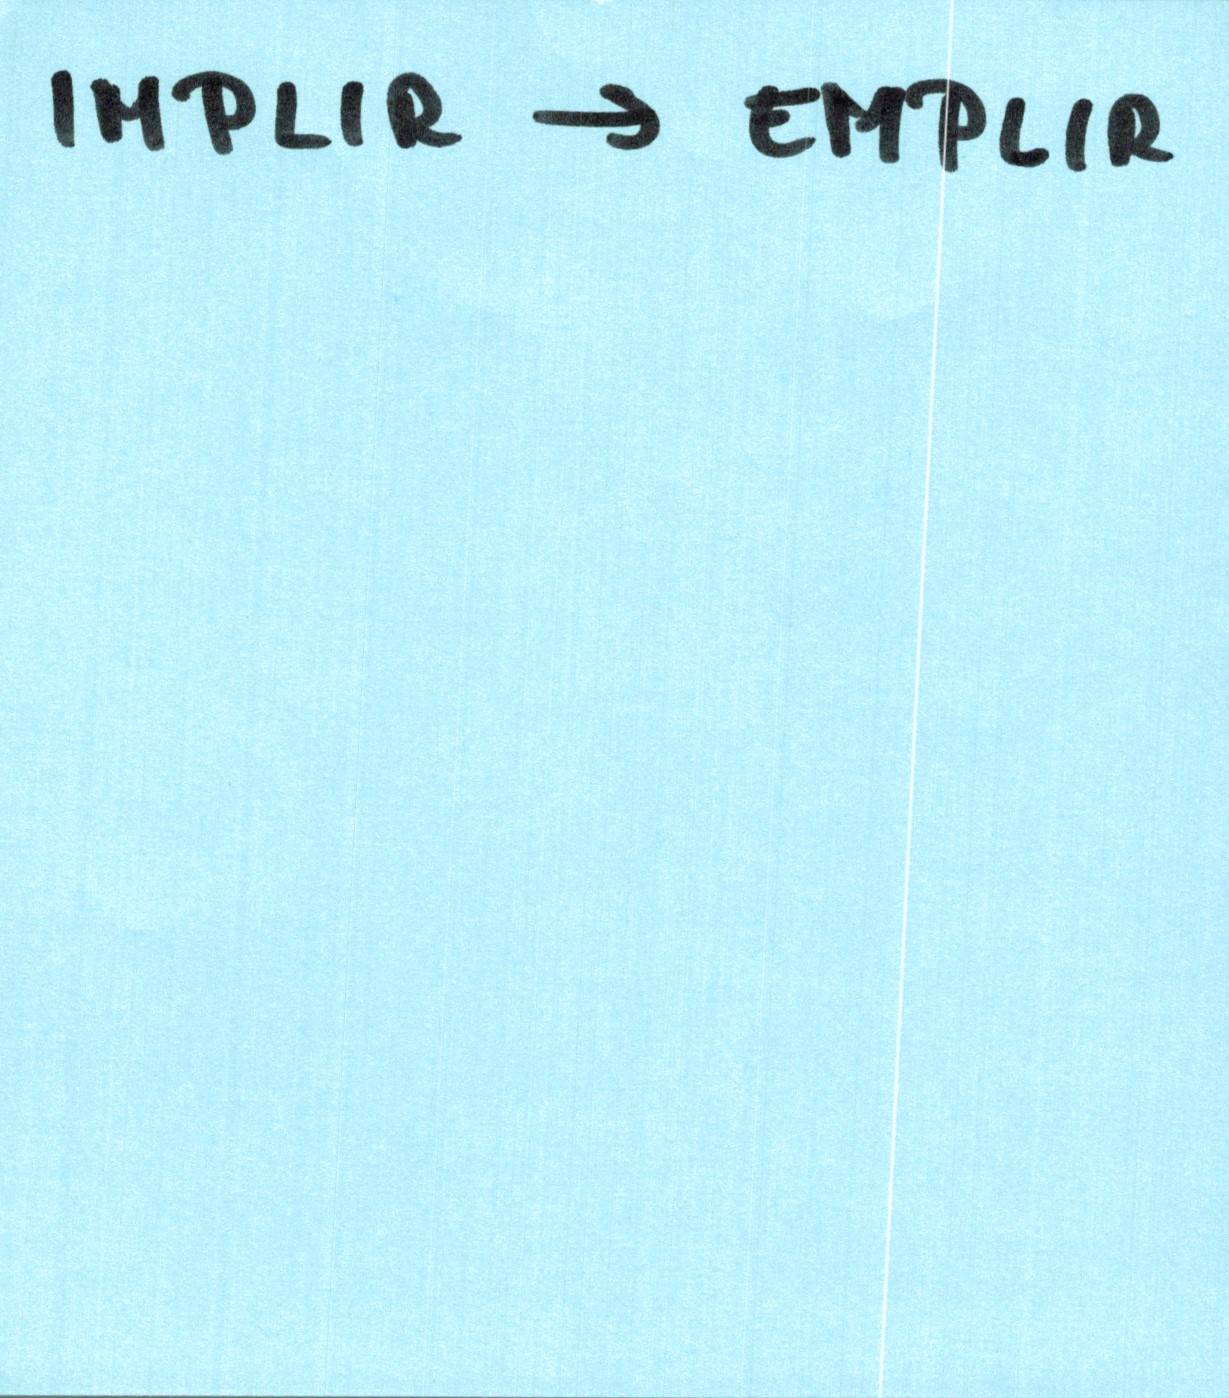 IMPLIR → EMPLIR